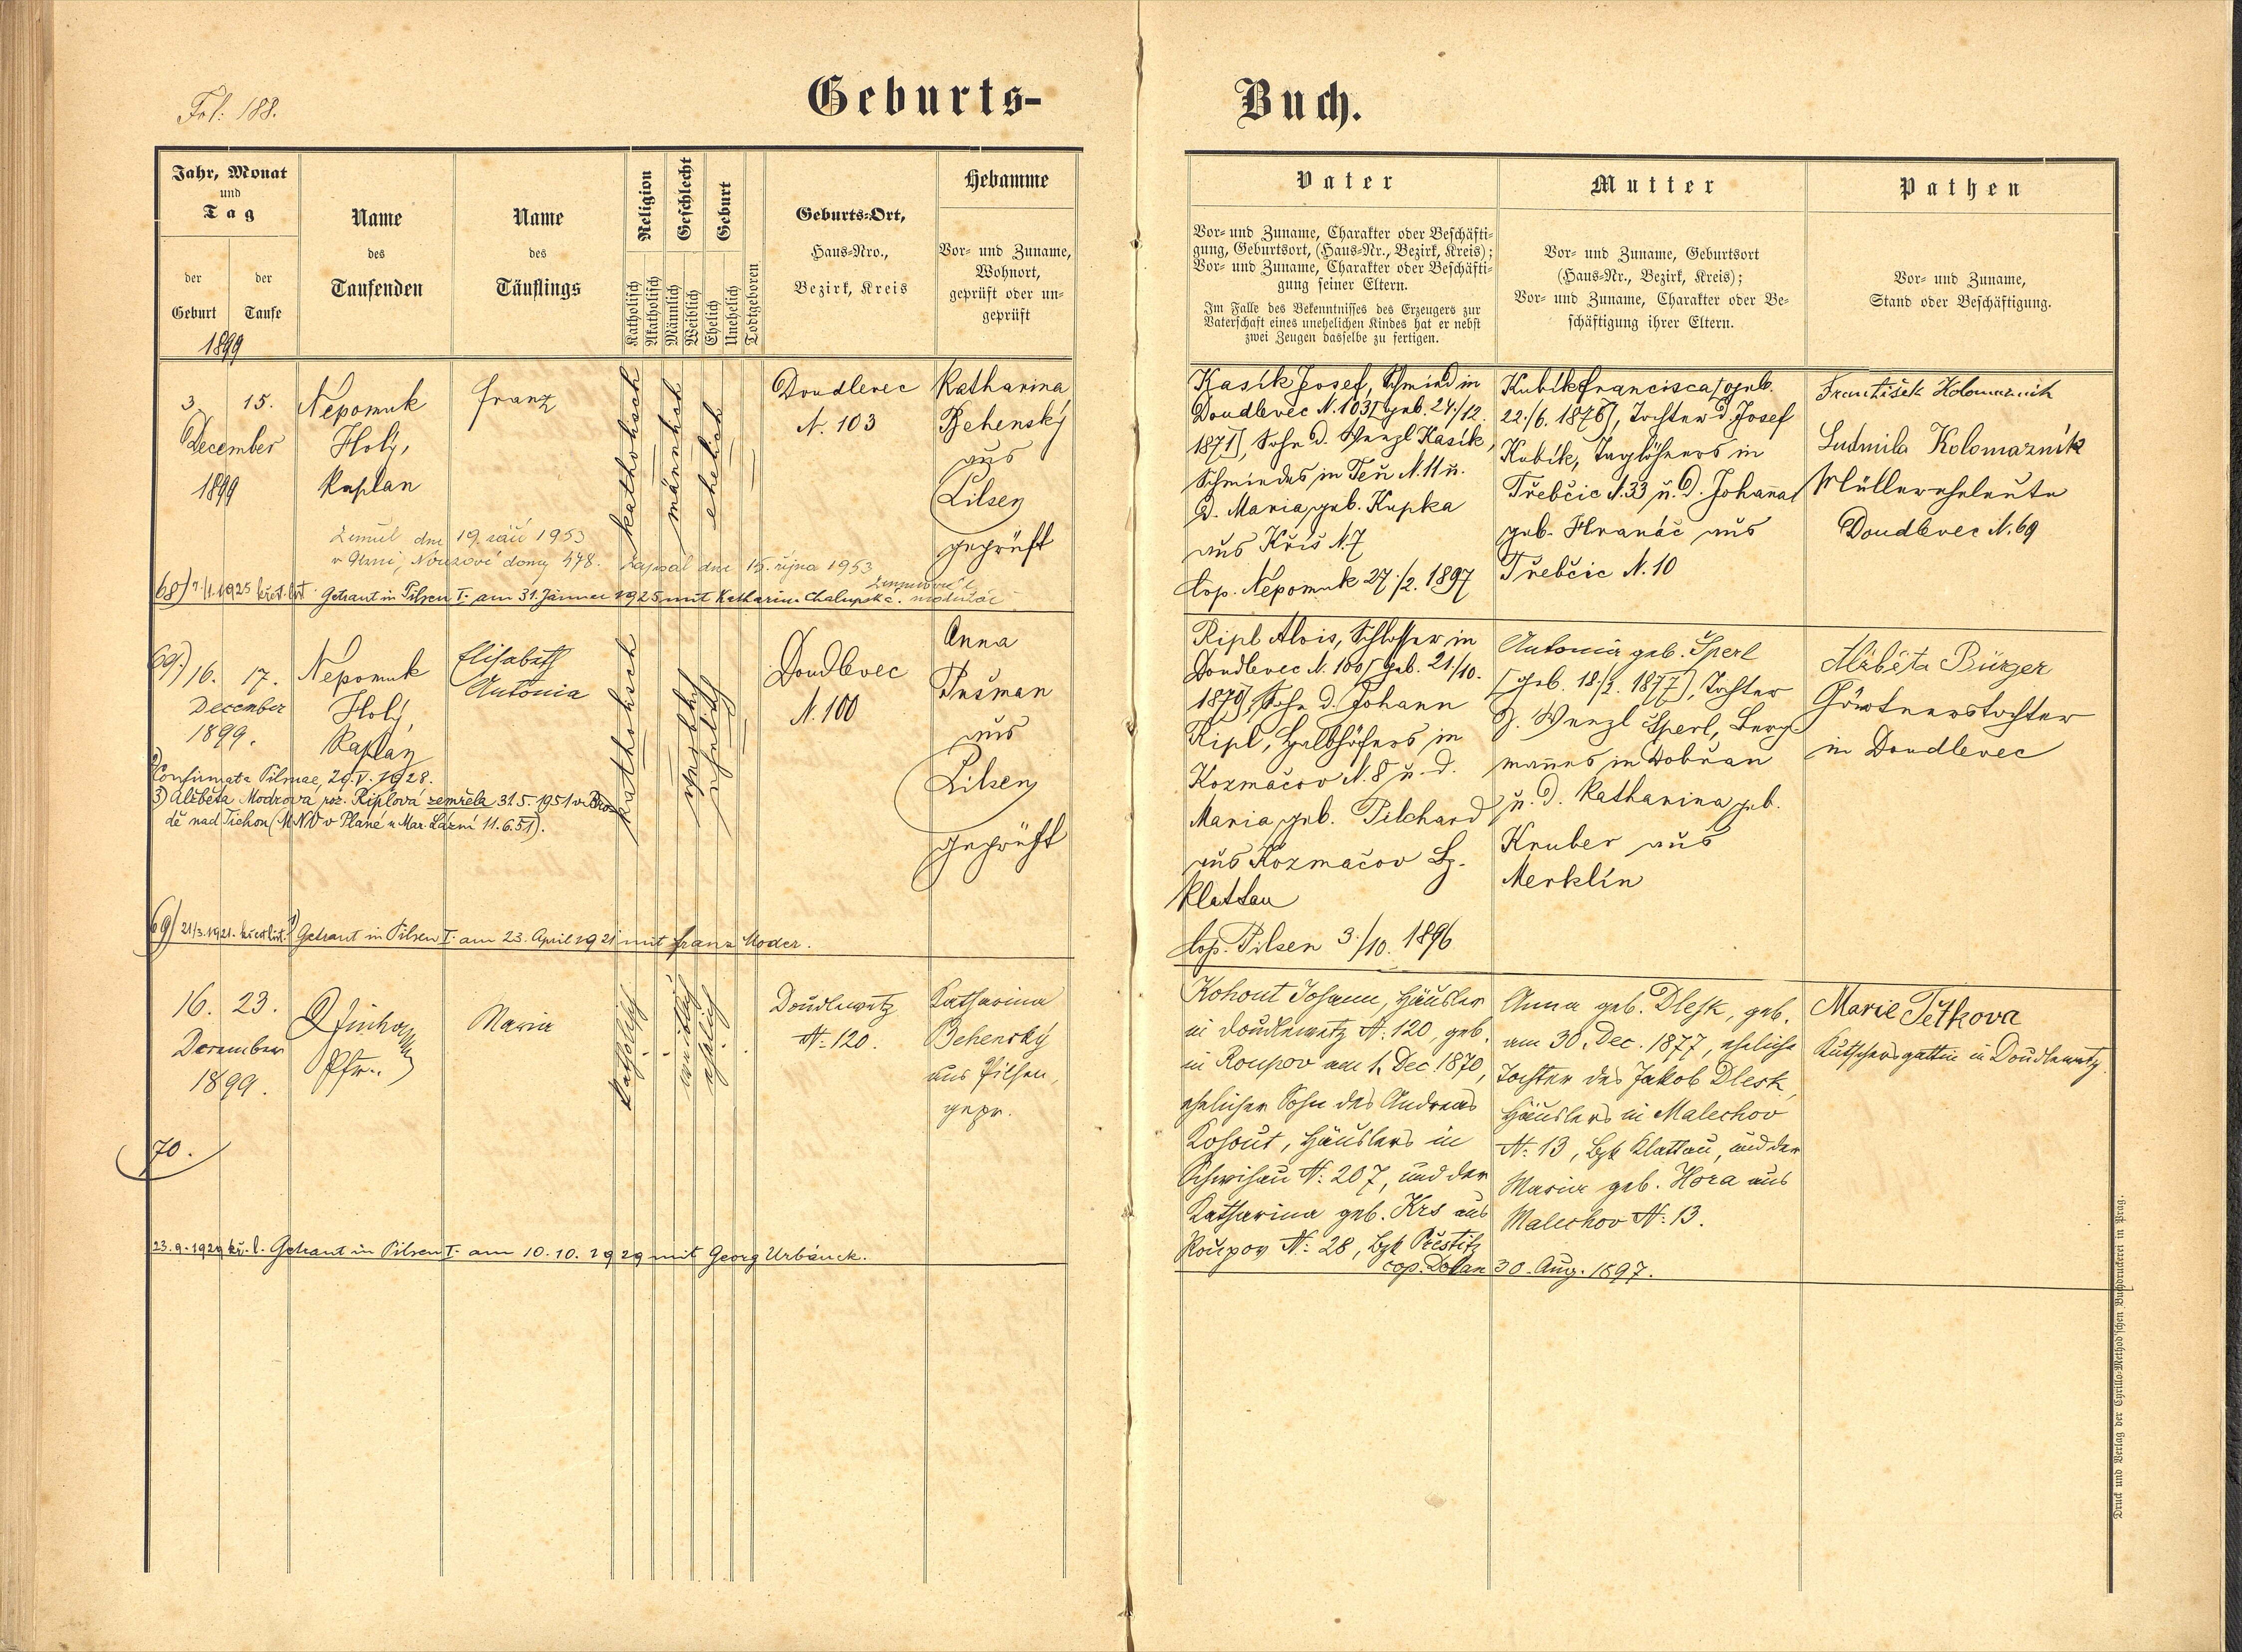 Fol: 188.
Geburts-
Buch.
Jahr, Monat
und
Tag
der
Geburt
der
Taufe
1899
Name
des
Taufenden
Name
des
Täuflings
Religion
Katholisch
Akatholisch
Geschlecht
Männlich
Weiblich
Geburt
Ehelich
Unehelich
Todtgeboren
Geburts-Ort,
Haus-Nro.,
Bezirk, Kreis
Hebamme
Vor- und Zuname,
Wohnort,
geprüft oder un-
geprüft
Vater
Vor- und Zuname, Charakter oder Beschäfti-
gung, Geburtsort, (Haus-Nr., Bezirk, Kreis);
Vor- und Zuname, Charakter oder Beschäfti-
gung seiner Eltern.
Im Falle des Bekenntnisses des Erzeugers zur
Vaterschaft eines unehelichen Kindes hat er nebst
zwei Zeugen dasselbe zu fertigen.
Mutter
Vor- und Zuname, Geburtsort
(Haus-Nr., Bezirk, Kreis);
Vor- und Zuname, Charakter oder Be-
schäftigung ihrer Eltern.
Pathen
Vor- und Zuname,
Stand oder Beschäftigung.
3. 15.
December
1899
Nepomuk
Holý,
Kaplan
Franz
katholisch
männlich
ehelich
Doudlevec
N. 103
Katharina
Behenský
aus
Pilsen
geprüft
Kasík Josef, Schmied in
Doudlevec N. 103 [geb. 24./12.
1871], Sohn d. Wenzl Kasík,
Schmiedes in N. 11 u.
d. Maria, geb. Kupka
aus Kříš N. 7
Cop. Nepomuk 27./2. 1897
Kubík Francisca [geb.
22./6. 1876], Tochter d. Josef
Kubík, Taglöhners in
Třebčic N. 33 u. d. Johanna
geb. Hranáč aus
Třebčic N. 10
František Kolomazník
Ludmila Kolomazník
Müllerseheleute
Doudlevec N. 69
Zemřel dne 19. září 1953
v Plzni, Nouzové domy 478. Zapsal dne 15. října 1953
68) 7/1. 1925 křest. list. Getraut in Pilsen I. am 31. Jänner 1925 mit Katharina Chalupská.
69.) 16. 17.
December
1899.
Nepomuk
Holý,
Kaplan
Elisabeth
Antonia
katholisch
weiblich
ehelich
Doudlevec
N. 100
Anna
Tušman
aus
Pilsen
geprüft
Ripl Alois, Schlosser in
Doudlevec N. 100 [geb. 21./10.
1870], Sohn d. Johann
Ripl, Halbhöfers in
Kozmačov N. 8 u. d.
Maria, geb. Pilchard
aus Kozmačov Bz.
Klattau
Cop. Pilsen 3./10. 1896
Antonia geb. Šperl
[geb. 18./2. 1877], Tochter
d. Wenzl Šperl, Berg-
mannes in Dobřan
u. d. Katharina geb.
Kruber aus
Merklín
Alžběta Bürger
Gärtnerstochter
in Doudlevec
2) Confirmata Pilsnae, 29. V. 1928.
3) Alžběta Modrová roz. Riplová zemřela 31.5.1951 v Bro-
dě nad Tichou (MNV v Plané u Mar. Lázní 11.6.51).
69) 21/3. 1921. křest. list. 1) Getraut in Pilsen I. am 23. April 1921 mit Franz Moder.
16. 23.
December
1899.
Pfr.
Maria
katholisch
weiblich
ehelich
Doudlewetz
N: 120.
Katharina
Behenský
aus Pilsen,
gepr.
Kohout Johann, Häusler
in Doudlewetz N: 120, geb.
in Roupov am 1. Dec. 1870,
ehelicher Sohn des Andreas
Kohout, Häuslers in
Schwihau N: 207, und der
Katharina geb. Krs aus
Roupov N: 28, Bzk Přestitz
cop. Dolan 30. Aug. 1897.
Anna geb. Dlesk, geb.
am 30. Dec. 1877, eheliche
Tochter des Jakob Dlesk,
Häuslers in Malechov
N: 13, Bzk Klattau, und der
Maria geb. Hora aus
Malechov N: 13.
Marie Peťkova
Kutschersgattin in Doudlewetz.
70.
23.9.1929 kř. l. Getraut in Pilsen I. am 10.10.1929 mit Georg Urbánek.
Druck und Verlag der Cyrillo-Method'schen Buchdruckerei in Prag.